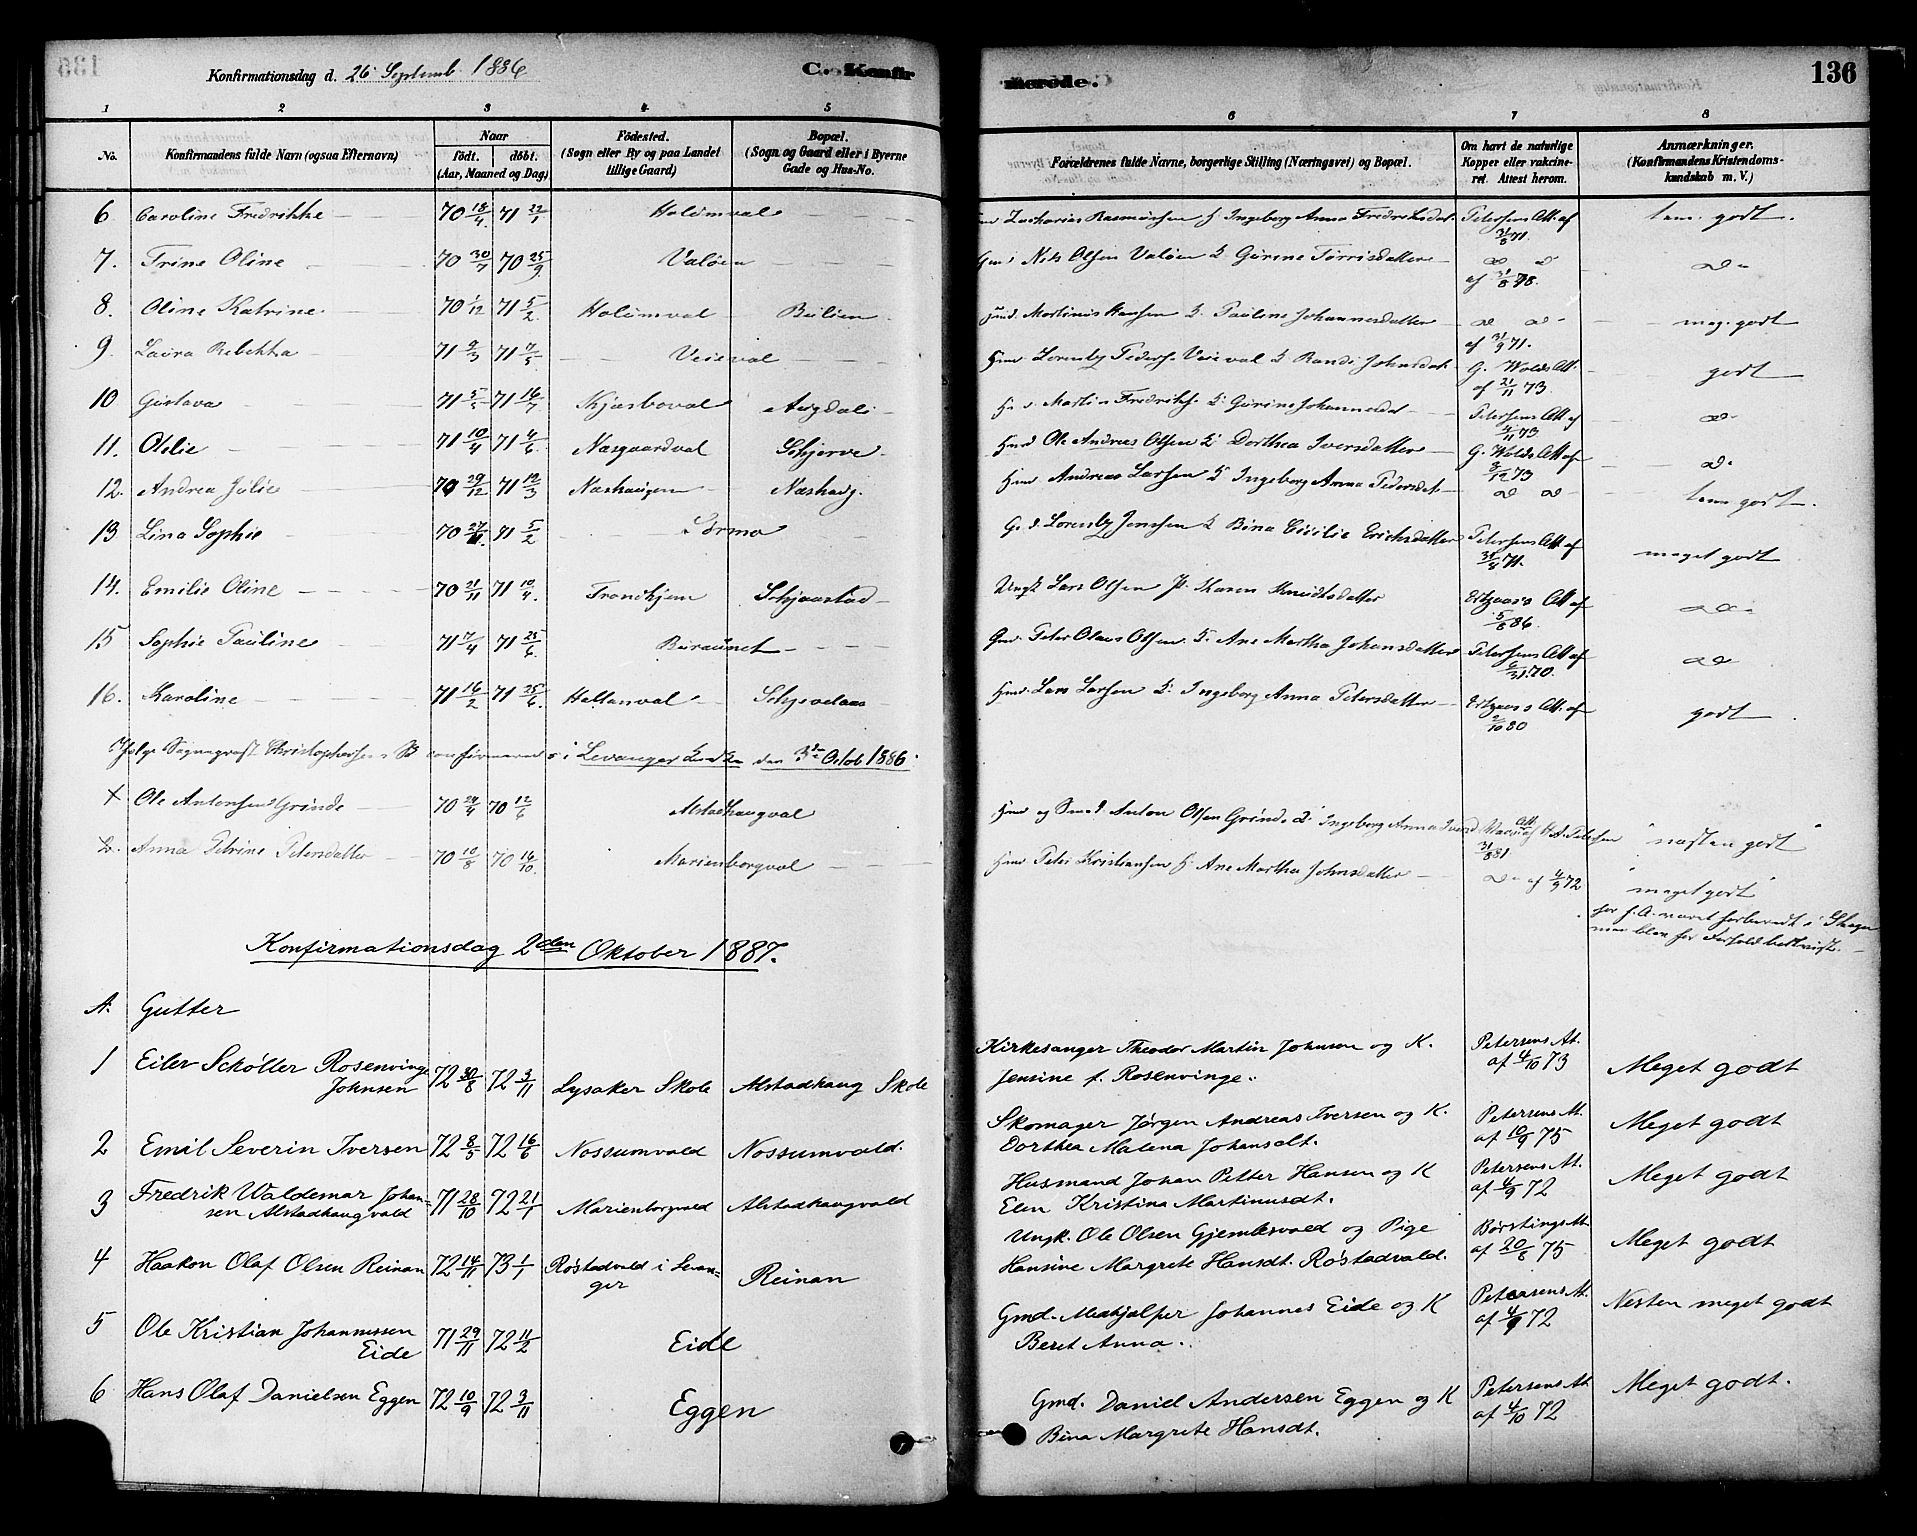 Konfirmationsdag d. 26 Septemb. 1886
C. Konfirmerede.
136
1 2 3 4 5 6 7 8
No.
Konfirmandens fulde Navn (ogsaa Efternavn)
Naar
födt. döbt.
(Aar, Maaned og Dag)
Födested.
(Sogn eller By og paa Landet
tillige Gaard)
Bopæl.
(Sogn og Gaard eller i Byerne
Gade og Hus-No.
Forældrenes fulde Navne, borgerlige Stilling (Næringsvei) og Bopæl.
Om havt de naturlige
Kopper eller vakcine-
ret. Attest herom.
Anmærkninger.
(Konfirmandens Kristendoms-
kundskab m. V.)
6. Caroline Fredrikke 70 18/4 71 22/1 Holumval Zacharias Rasmussen Ingeborg Anna Fredriksdat. Petersens Att. af 31/8 71. tem. godt.
7. Trine Oline 70 30/7 70 25/9 Valöen Nils Olsen Valöen K. Gurine Torrisdatter do do af 31/8 78. do
8. Oline Katrine 70 1/12 71 5/2 Holumval Bülien Martinus Hansen K. Pauline Johannesdatter do do af 31/9 71. meg. godt
9. Laura Rebekka 71 9/3 71 7/5 Veieval Lorents Peders. Veieval K. Randi Johnsdat. G. Wolds Att. af 21/11 73 godt
10 Gustava 71 5/5 71 16/7 Skjesboval Augdal Martin Fredriks. K. Gurine Johannesdat Petersens Att. af 4/11 73. do
11. Otilie 71 10/4 71 4/6 Næsgaardval Schjerve Ole Andreas Olsen K. Dorthea Iversdatter G. Wolds Att. af 3/12 73 do.
12. Andrea Julie 70 29/12 71 12/3 Næshaugen Næshaug. Andreas Larsen K. Ingeborg Anna Pedersdat do do tem. godt.
13 Lina Sophie 70 27/11. 71 5/2 Lorents Jensen K. Bina Cicilie Erichsdatter Petersens Att. af 71. meget godt
14. Emilie Oline 70 21/11 71 10/4. Trondhjem Schjaastad Ungk. Lars Olsen P. Maren Knudtsdatter Att. af 5/8 86. do
15 Sophie Pauline 71 7/4 71 25/6. Buraunet Gmd. Peter Olaus Olsen. K. Ane Martha Johansdatter Petersens Att. af 70. do
16. Karoline 71 16/2 71 25/6. Hallanval Lars Larsen K. Ingeborg Anna Petersdatter Att. af 2/10 80 godt
Ifølge Sognepræst Christophersens confirmeredes i Levanger den 3die Octob 1886.
Ole Antonsen Grinde 70 24/4 70 12/6 Alstadhaugval og Anton Olsen Grinde K. Ingeborg Anna 31/8 81 "næsten godt"
2. Anna Petrine Petersdatter 70 10/8 70 16/10. Marienborgval Peter Kristiansen K. Ane Martha Johnsdatter do af 4/9 72 "meget godt"
Konfirmationsdag 2den Oktober 1887.
A. Gutter
1 Eiler Schöller Rosenvinge
Johnsen 72 30/8 72 3/11 Lysaker Skole Alstadhaug Skole
Kirkesanger Theodor Martin Johnsen og K.
Jensine f. Rosenvinge. Petersens At. af 4/10 73 Meget godt
2 Emil Severin Iversen 72 8/5 72 16/6 Nossumvald Nossumvald.
Skomager Jørgen Andreas Iversen og K.
Dorthea Malena Johansdt. Petersens At. af 10/9 75 Meget godt
3 Fredrik Waldemar Johan-
sen Alstadhaugvald 71 28/10 72 21/1 Marienborgvald Alstadhaugvald
Husmand Johan Petter Hansen og K
Elen Kristina Martinusdt. Petersens At. af 4/9 72 Meget godt
4 Haakon Olaf Olsen Reinan 72 14/11 73 1/1 Røstadvald i Levan-
ger Reinan
Ungk. Ole Olsen Gjemlesvald og Pige
Hansine Margrete Hansdt. Røstadvald. Børstings At. af 20/8 75 Meget godt
5 Ole Kristian Johannessen
Eide 71 29/11 72 11/2 Eide
Gmd. Medhjælper Johannes Eide og K
Beret Anna. Petersens At. af 4/9 72 Nesten meget godt
6 Hans Olaf Danielsen Eggen 72 10/9 72 3/11 Eggen
Gmd. Daniel Andersen Eggen og K
Bina Margrete Hansdt. Petersens At. af 4/10 72 Meget godt.